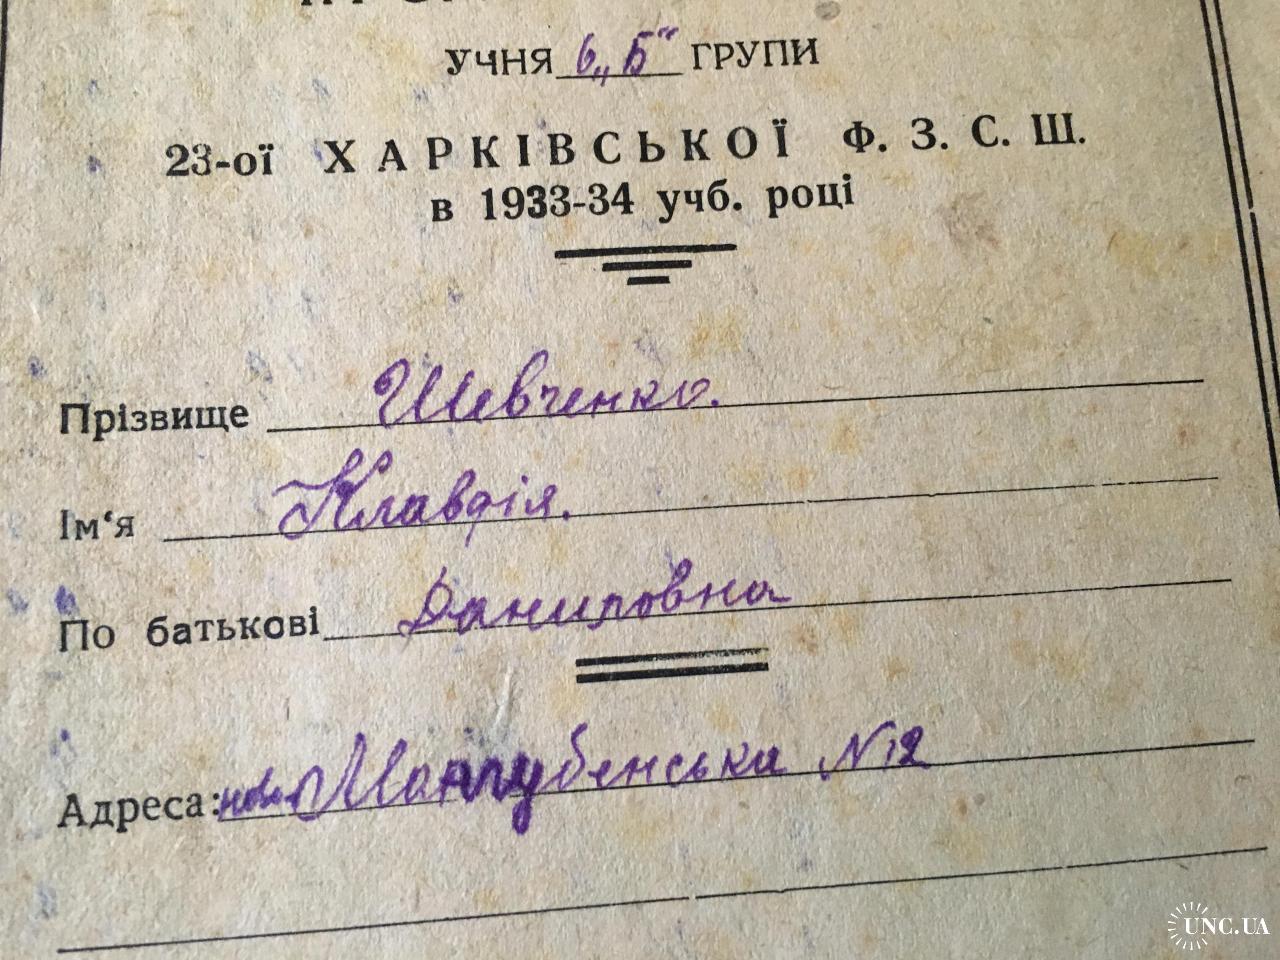 УЧНЯ 6 „Б" ГРУПИ
23-ої ХАРКІВСЬКОЇ Ф. З. С. Ш.
в 1933-34 учб. році
Прізвище Шевченко.
Ім‘я Клавдія.
По батькові Даниловна
Адреса: №12
UNC.UA